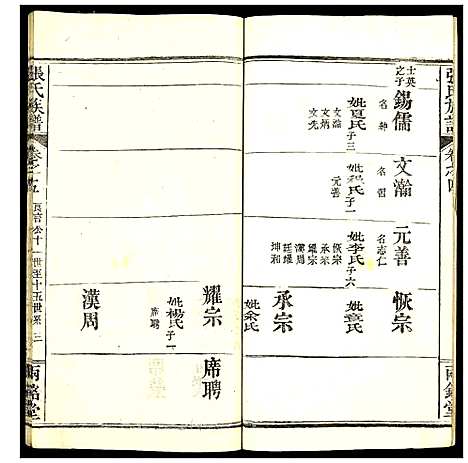 張氏族譜
卷之四
兩銘堂
士英之子
錫儒
名紳
妣夏氏
子三
文瀚
文炳
文先
文瀚
名習
妣程氏
子一
元善
名志仁
妣李氏
子六
恢宗
承宗
耀宗
漢周
廷耀
坤和
恢宗
妣袁氏
承宗
妣余氏
耀宗
妣楊氏
子一
席聘
席聘
漢周
張氏族譜
卷之五
公十一世至十五世系
三
兩銘堂